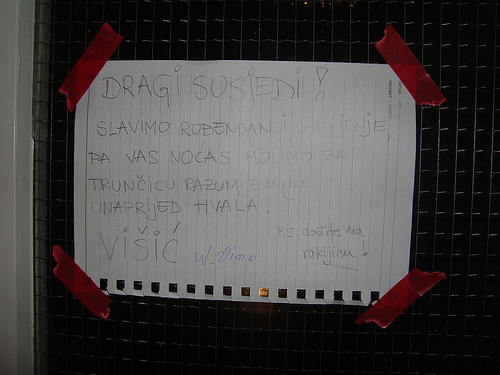 DRAGI SUSJEDI!
SLAVIMO ROĐENDAN I USELJENJE,
PA VAS NOĆAS MOLIMO ZA
TRUNČICU RAZUMIJEVANJA
UNAPRIJED HVALA.
VIŠIĆ
P.S. dođite na
rakijicu!